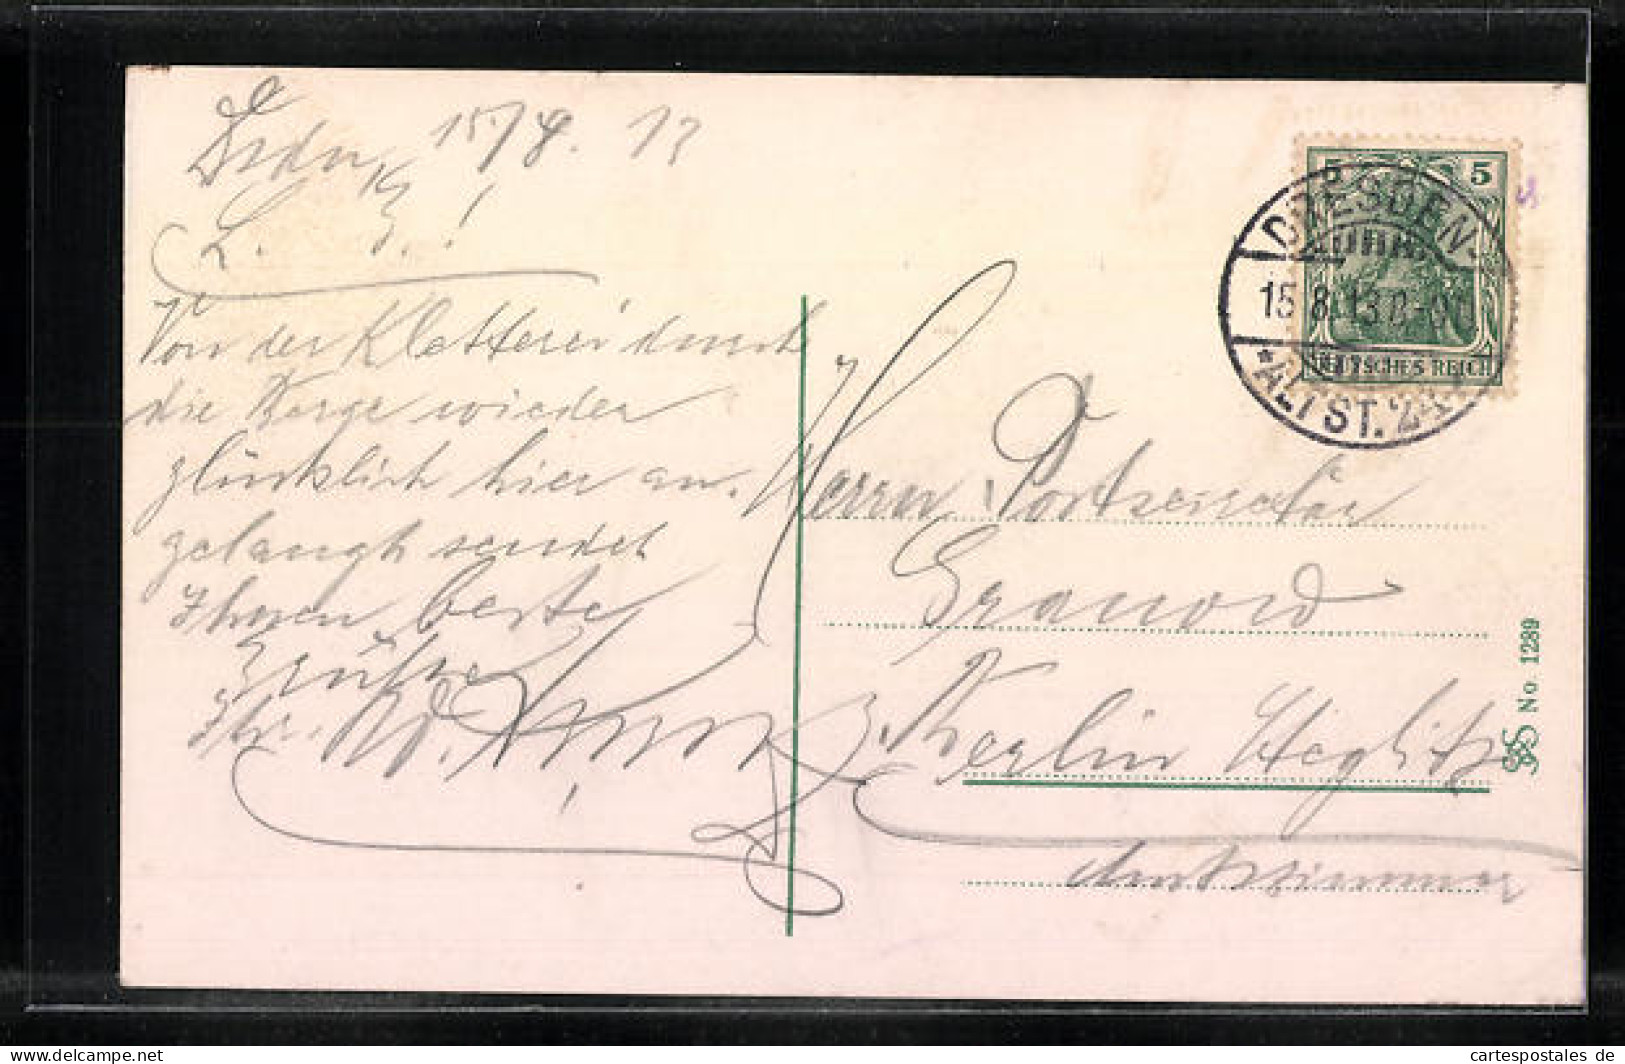 15/8. 13
L. B.!
Von der Kletterei durch
die Berge wieder
glücklich hier an-
gelangt sendet
Ihnen beste
Grüße
Ihr
Herrn Postsekretär
Berlin Steglitz
Amtszimmer
5 5
DEUTSCHES REICH
DRESDEN
15.8.13.8-9
*ALTST. 24
No 1289
cartespostales de